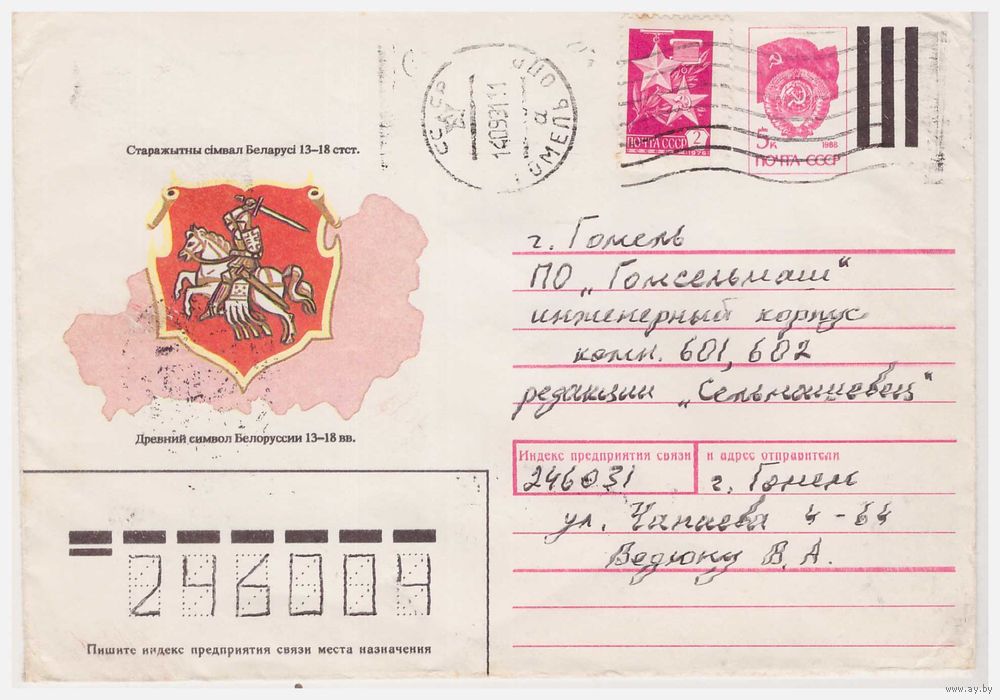 Старажытны сімвал Беларусі 13–18 стст.
Древний символ Белоруссии 13–18 вв.
СССР
140991 11
ГОМЕЛЬ
а
ПОЧТА СССР 2
1976
5к
1988
ПОЧТА СССР
г. Гомель
ПО „Гомсельмаш“
инженерный корпус
комн. 601, 602
редакции „Сельмашовец“
Индекс предприятия связи и адрес отправителя
246031 г. Гомель
ул. Чапаева 4-64
Ведюку В. А.
246004
Пишите индекс предприятия связи места назначения
www.ay.by